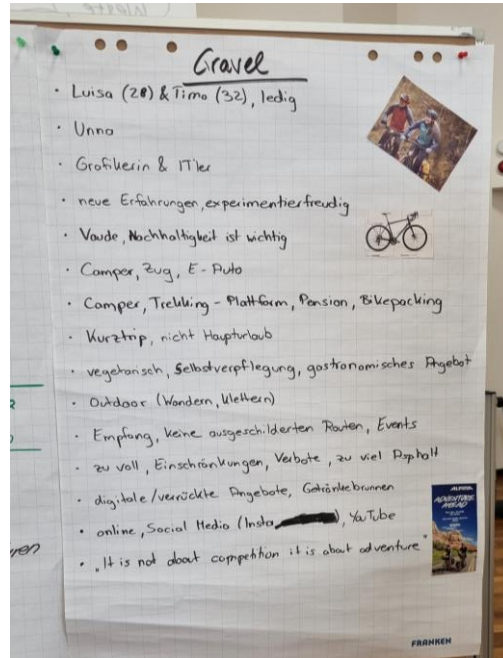 Gravel
· Luisa (28) & Timo (32), ledig
· Unna
· Grafikerin & ITler
· neue Erfahrungen, experimentierfreudig
· Vaude, Nachhaltigkeit ist wichtig
· Camper, Zug, E-Auto
· Camper, Trekking-Plattform, Pension, Bikepacking
· Kurztrip, nicht Haupturlaub
· vegetarisch, Selbstverpflegung, gastronomisches Angebot
· Outdoor (Wandern, Klettern)
· Empfang, keine ausgeschilderten Routen, Events
· zu voll, Einschränkungen, Verbote, zu viel Asphalt
· digitale/verrückte Angebote, Getränkebrunnen
· online, Social Media (Insta), YouTube
· „It is not about competition it is about adventure"
ALPINA
ADVENTURE
AHEAD
FRANKEN